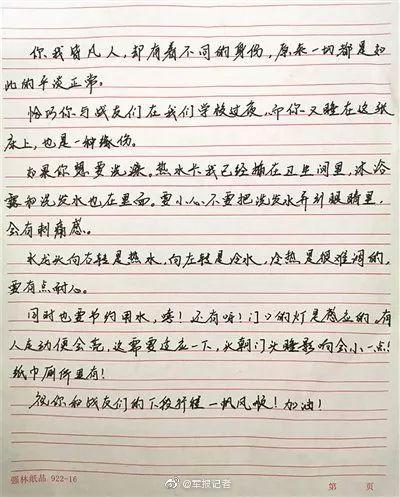 你我皆凡人,却有着不同的身份,原来一切都是如
此的平淡正常。
恰巧你与战友们在我们学校过夜,而你又睡在这张
床上,也是一种缘份。
如果你想要洗澡。热水卡我已经插在卫生间里,沐浴
露和洗发水也在里面。要小心不要把洗发水弄到眼睛里,
会有刺痛感。
水龙头向右转是热水,向左转是冷水,冷热是很难调的,
要有点耐心。
同时也要节约用水,哦!还有呀!门口的灯是感应的,有
人走动便会亮,这需要适应一下,头朝门头睡影响会小一点!
纸巾厕所里有!
祝你和战友们的下段行程一帆风顺!加油!
强林纸品 922-16 第 页
@军报记者